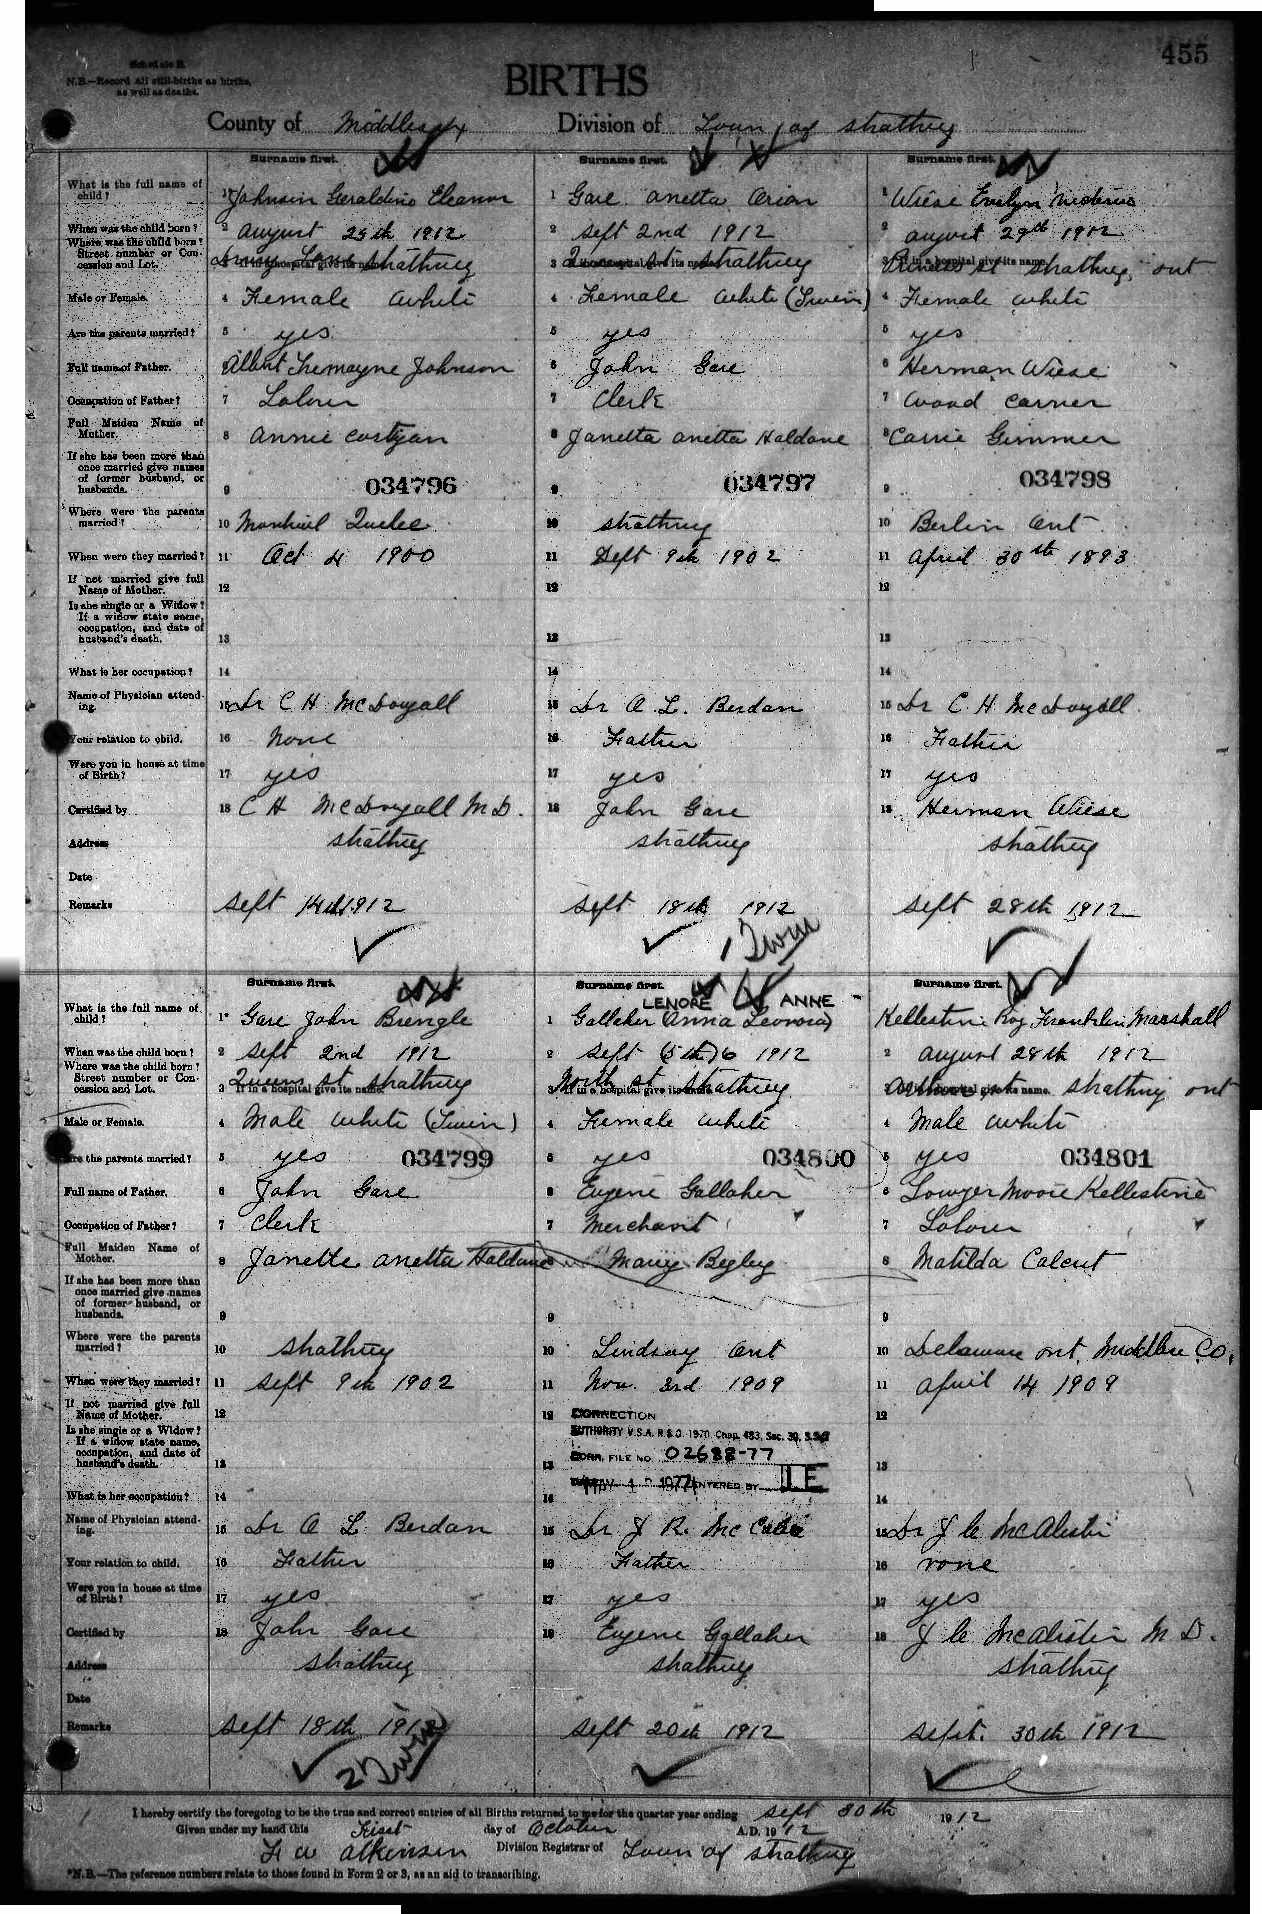 455
Schedule B.
N.B.—Record all still-births as births,
as well as deaths.
BIRTHS
County of Middlesex Division of Town of Strathroy
Surname first. Surname first. Surname first.
What is the full name of child? 1* Johnson Geraldine Eleanor
1 Gare Anetta Orian
1 Wiese Evelyn
When was the child born? 2 August 25th 1912
2 Sept 2nd 1912
2 August 29th 1912
Where was the child born? Street number or Concession and Lot. 3 If in a hospital give its name. Strathroy
3 If in a hospital give its name. Queen St Strathroy
3 If in a hospital give its name. Princess St Strathroy, Ont
Male or Female. 4 Female White
4 Female White (Twin)
4 Female White
Are the parents married? 5 yes
5 yes
5 yes
Full name of Father. Albert Tremayne Johnson
6 John Gare
6 Herman Wiese
Occupation of Father? 7 Laborer
7 Clerk
7 Wood Carver
Full Maiden Name of Mother. 8 Annie Costyan
8 Janetta Anetta Haldane
8 Carrie Gimmer
If she has been more than once married give names of former husband, or husbands. 9 034796
9 034797
9 034798
Where were the parents married? 10 Montreal Quebec
10 Strathroy
10 Berlin Ont
When were they married? 11 Oct 4 1900
11 Sept 9th 1902
11 April 30th 1893
If not married give full Name of Mother. 12
12
12
Is she single or a Widow? If a widow state name, occupation, and date of husband's death. 13
13
13
What is her occupation? 14
14
14
Name of Physician attending. 15 Dr C H McDougall
15 Dr A. L. Berdan
15 Dr C H McDougall
Your relation to child. 16 None
16 Father
16 Father
Were you in house at time of Birth? 17 yes
17 yes
17 yes
Certified by 18 C H McDougall M D.
18 John Gare
18 Herman Wiese
Address Strathroy
Strathroy
Strathroy
Date
Remarks Sept 14th 1912
Sept 18th 1912
Sept 28th 1912
1 Twin
Surname first. Surname first. Surname first.
LENORE ANNE
What is the full name of child? 1* Gare John Brengle
1 Gallaher (Anna Leonora)
Kellestine Roy Franklin Marshall
When was the child born? 2 Sept 2nd 1912
2 Sept (5th) 6 1912
2 August 28th 1912
Where was the child born? Street number or Concession and Lot. 3 If in a hospital give its name. Queens St Strathroy
If in a hospital give its name. North St Strathroy
give its name. Strathroy Ont
Male or Female. 4 Male White (Twin)
4 Female White
4 Male White
Are the parents married? 5 yes 034799
5 yes 034800
5 yes 034801
Full name of Father. 6 John Gare
6 Eugene Gallaher
6 Sawyer Moore Kellestine
Occupation of Father? 7 Clerk
7 Merchant
7 Laborer
Full Maiden Name of Mother. 8 Janette Anetta Haldane
Mary Begley
8 Matilda Calcut
If she has been more than once married give names of former husband, or husbands. 9
9
9
Where were the parents married? 10 Strathroy
10 Lindsay Ont
10 Delaware Ont. Middlesex Co.
When were they married? 11 Sept 9th 1902
11 Nov. 3rd 1909
11 April 14 1909
If not married give full Name of Mother. 12
12 CORRECTION
12
AUTHORITY V.S.A. R.S.O. 1970 Chap. 483, Sec. 30,
Is she single or a Widow? If a widow state name, occupation, and date of husband's death. 13
13 CORR. FILE NO. 02688-77
13
MAY 1977 ENTERED BY
What is her occupation? 14
14
14
Name of Physician attending. 15 Dr A L Berdan
15 Dr J R. McCabe
15 Dr J C McAlister
Your relation to child. 16 Father
16 Father
16 none
Were you in house at time of Birth? 17 yes
17 yes
17 yes
Certified by 18 John Gare
18 Eugene Gallaher
18 J C McAlister M D.
Address Strathroy
Strathroy
Strathroy
Date
Remarks Sept 18th 1912
Sept 20th 1912
Sept. 30th 1912
2 Twin
I hereby certify the foregoing to be the true and correct entries of all Births returned to me for the quarter year ending Sept 30th 1912
Given under my hand this First day of October A.D. 1912
F W Atkinson Division Registrar of Town of Strathroy
*N.B.—The reference numbers relate to those found in Form 2 or 3, as an aid to transcribing.